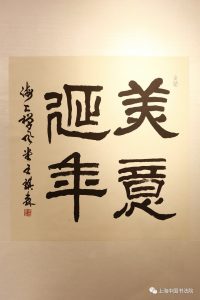 美意
延年
海上 王琪森
上海中国书法院